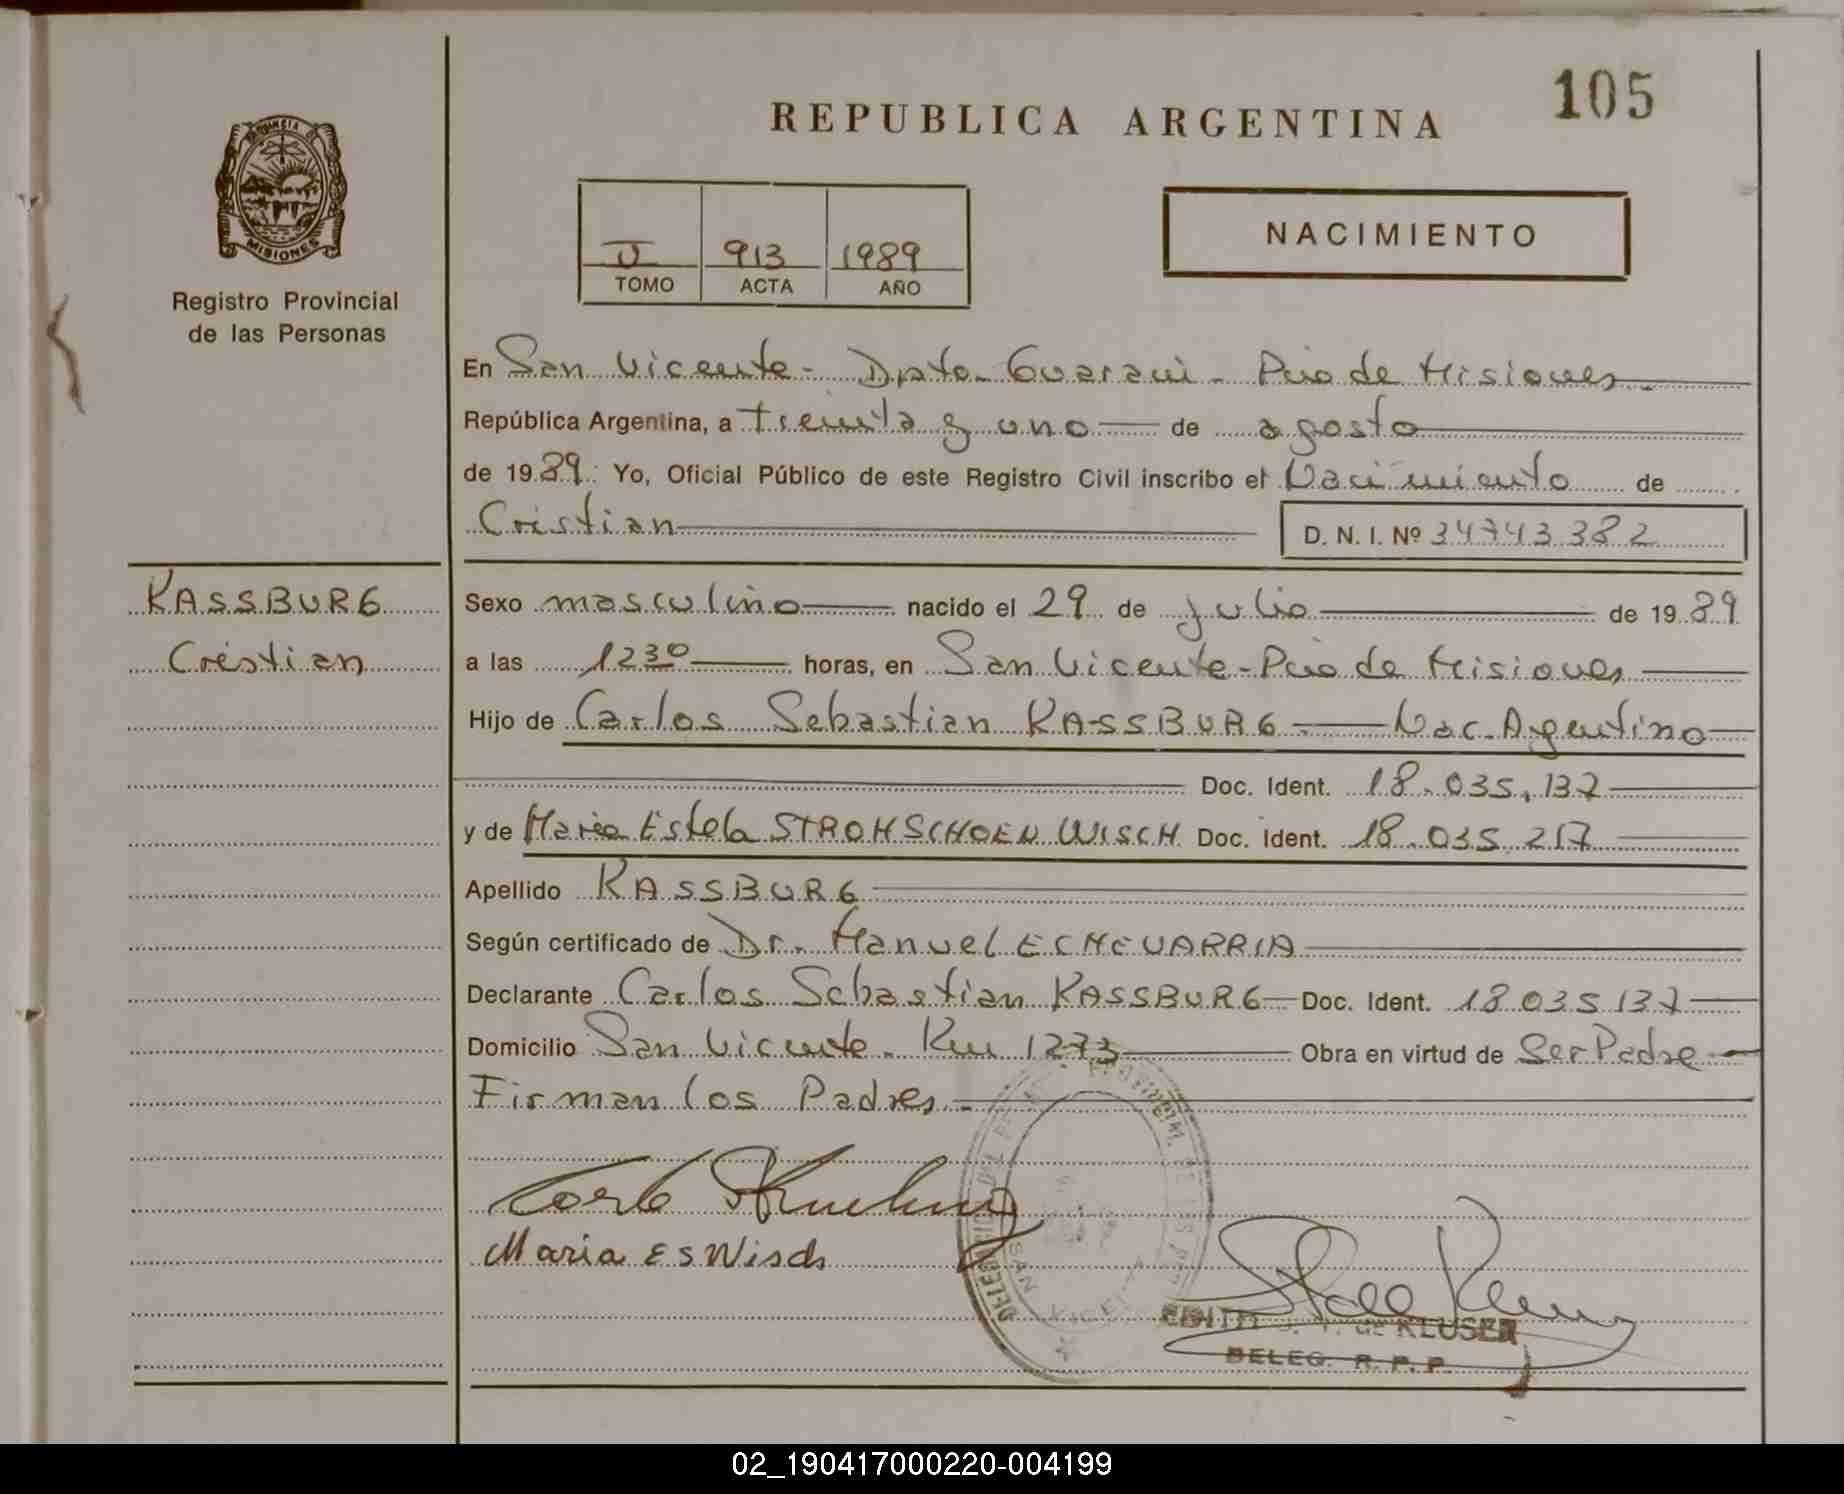 105
REPUBLICA ARGENTINA
PROVINCIA DE
MISIONES
Registro Provincial
de las Personas
913 1989
TOMO ACTA AÑO
NACIMIENTO
En San Vicente - Dpto. Guaraní - Pcia de Misiones
República Argentina, a treinta y uno de agosto
de 1989 : Yo, Oficial Público de este Registro Civil inscribo el Nacimiento de
Cristian D. N. I. Nº 34743382
KASSBURG
Cristian
Sexo masculino nacido el 29 de julio de 1989
a las 12 30 horas, en San Vicente - Pcia de Misiones
Hijo de Carlos Sebastian KASSBURG - Nac. Argentino
Doc. Ident. 18.035.137
y de Maria Estela STROHSCHOEN WISCH Doc. Ident. 18.035.217
Apellido KASSBURG
Según certificado de Dr. Manuel ECHEVARRIA
Declarante Carlos Sebastian KASSBURG Doc. Ident. 18.035.137
Domicilio San Vicente - Km 1273 Obra en virtud de Ser Padre
Firman los Padres. -
Maria E S Wisch
SAN VICENTE
EDITH J. T. de KLUSER
DELEG. R. P. P.
02_190417000220-004199